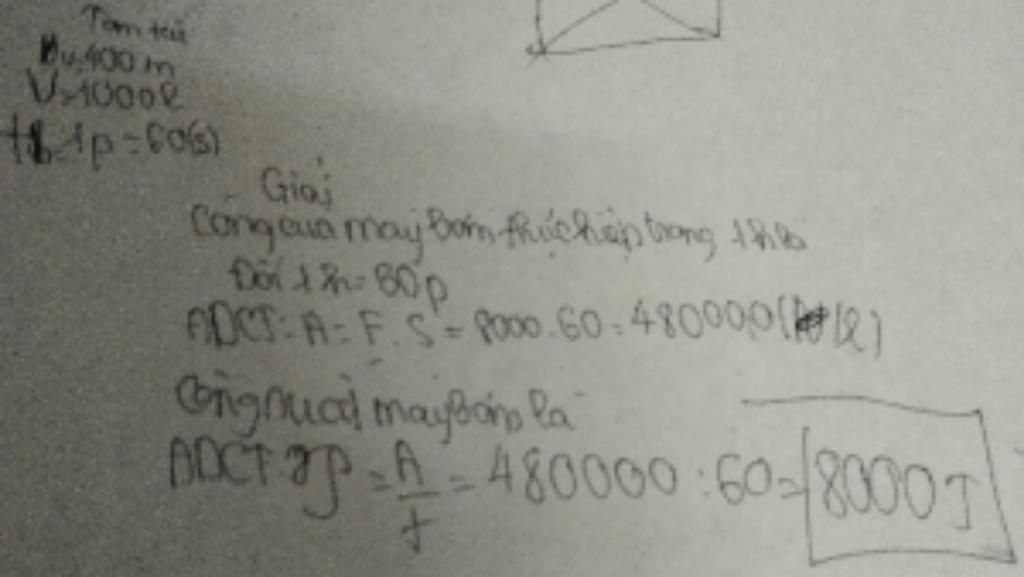 Tóm tắt
400m
V=1000l
1p=60(s)
Giải
Công của máy bơm thực hiện trong 1h là
Đổi 1h=60p
ADCT: A=F.S=8000.60=480000(l)
Công suất máy bơm là
ADCT P=A/t=480000:60=8000J